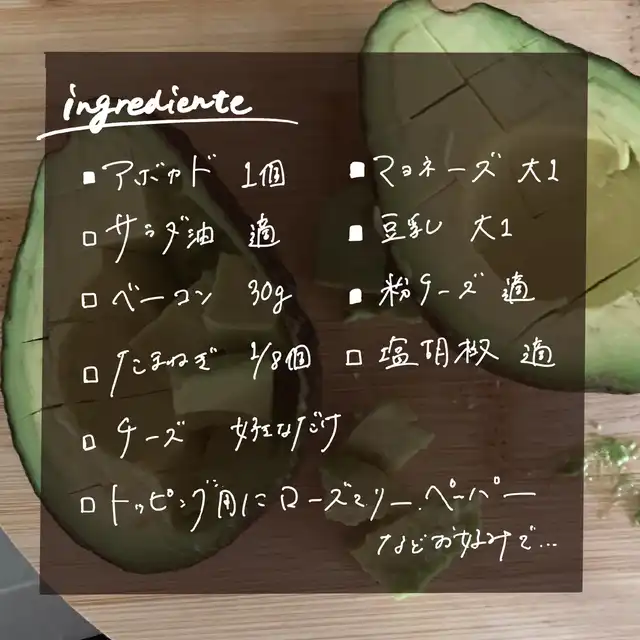 ingrediente
アボカド 1個
サラダ油 適
ベーコン 30g
たまねぎ 1/8個
チーズ 好きなだけ
トッピング用にローズマリー、ペーパー
などお好みで...
マヨネーズ 大1
豆乳 大1
粉チーズ 適
塩胡椒 適